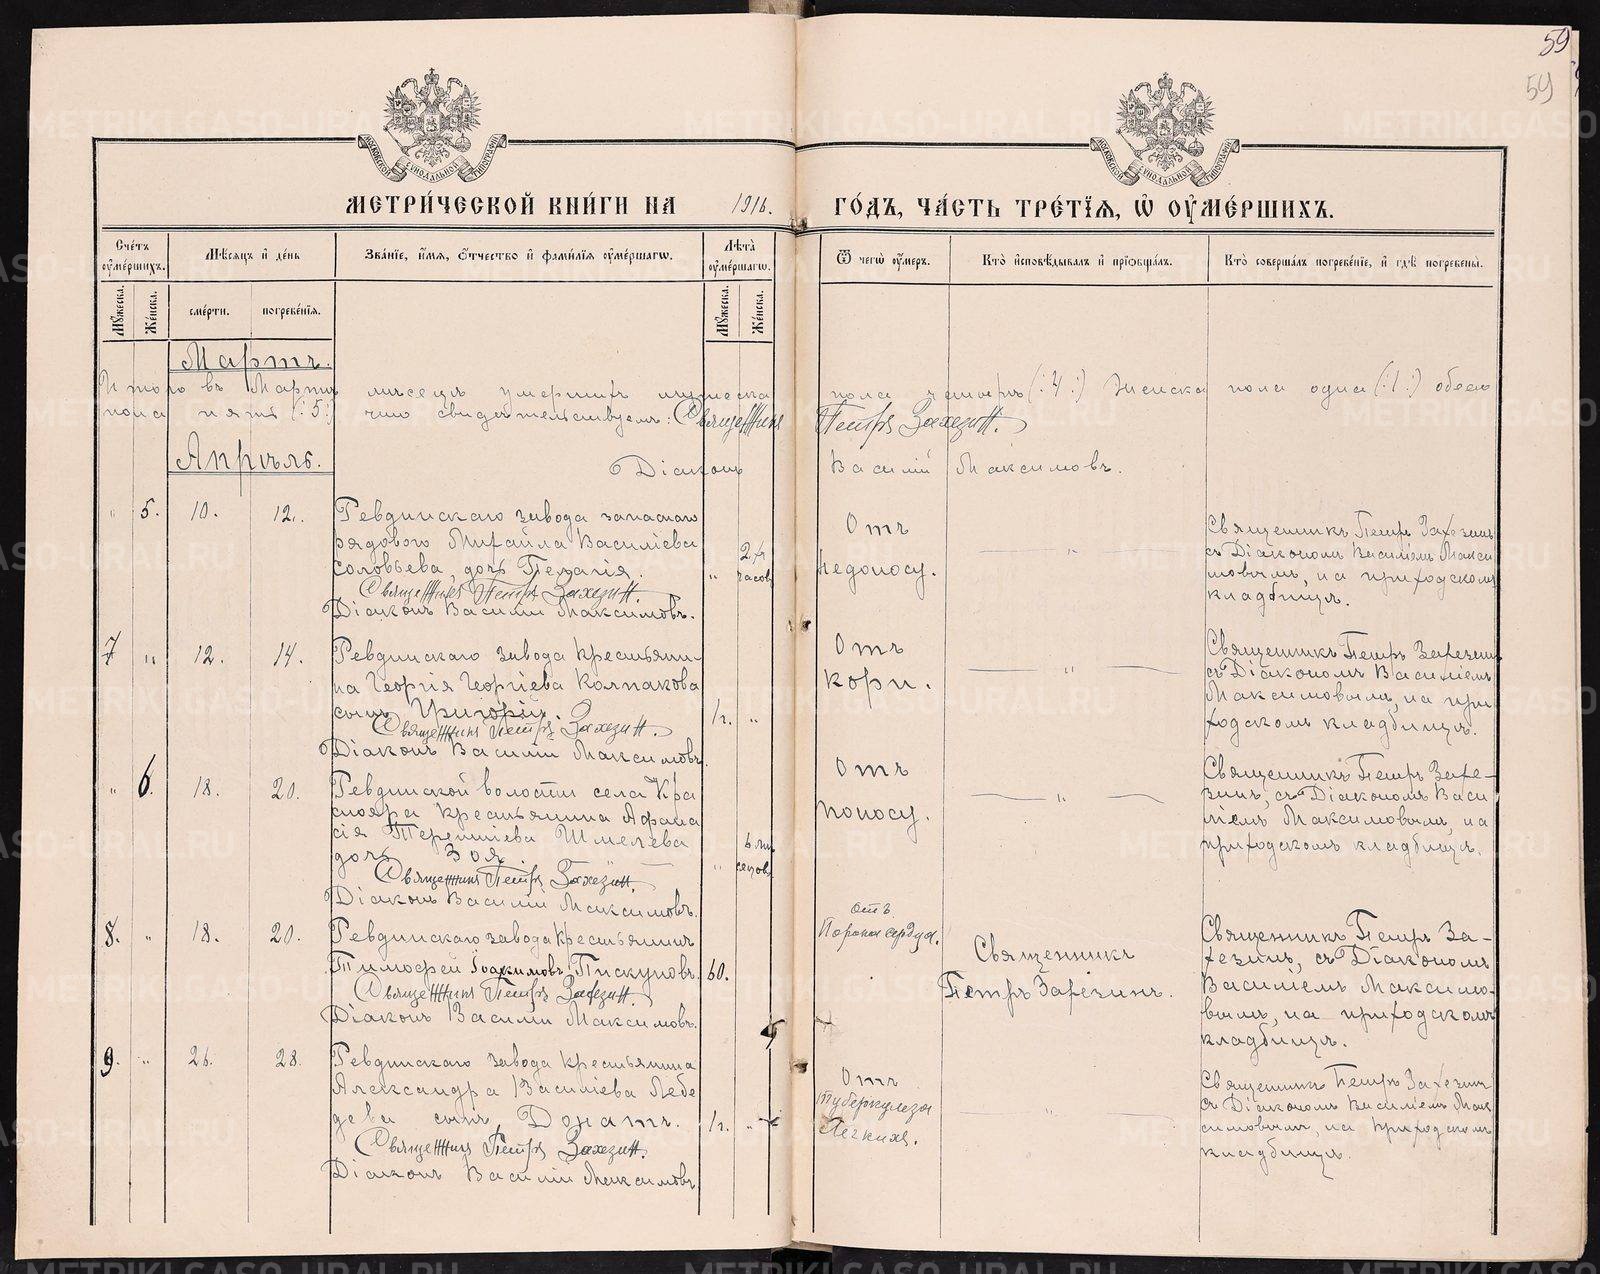 59
59
МОСКОВСКОЙ СѴНОДАЛЬНОЙ ТИПОГРАФІИ
МОСКОВСКОЙ СѴНОДАЛЬНОЙ ТИПОГРАФІИ
МЕТРИ́ЧЕСКОЙ КНИ́ГИ НА 1916. ГО́ДЪ, ЧА́СТЬ ТРЕ́ТЇѦ, Ѡ҆ ОУ҆МЕ́РШИХЪ.
Сче́тъ оу҆ме́ршихъ.
Мѣ́сѧцъ и҆ де́нь
Зва́нїе, и҆́мѧ, ѻ҆́тчество и҆ фами́лїѧ оу҆ме́ршагѡ.
Лѣ̀та оу҆ме́ршагѡ.
Ѿ чегѡ̀ оу҆́меръ.
Кто̀ и҆сповѣ́дывалъ и҆ прїѡбща́лъ.
Кто̀ соверша́лъ погребе́нїе, и҆ гдѣ̀ погребены̀.
Мꙋ́жеска.
Же́нска.
сме́рти.
погребе́нїѧ.
Мꙋ́жеска.
Же́нска.
Мартъ.
Итого въ Мартѣ мѣсяцѣ умершихъ мужеска пола четыре (:4:) Женска пола одна (:1:) обоего
пола пять (:5:) что свидѣтельствуемъ: Священникъ Петръ Захезин.
Апрѣль.
Діаконъ Василій Максимовъ.
" 5. 10. 12.
Ревдинскаго завода запаснаго
рядового Михаила Василіева
Соловьева, дочь Пелагія.
Священникъ Петръ Захезин.
Діаконъ Василій Максимовъ.
" часов
Отъ
недоносу.
— " —
Священникъ Петръ Захезинъ
съ Діакономъ Василіемъ Макси
мовымъ, на приходскомъ
кладбищѣ.
7 " 12. 14.
Ревдинскаго завода крестьяни-
на Георгія Георгіева Колпакова
сынъ Григорій.
Священникъ Петръ Захезин.
Діаконъ Василій Максимовъ.
1г. "
Отъ
кори.
— " —
Священникъ Петръ Захезинъ
съ Діакономъ Василіемъ
Максимовымъ, на при
ходскомъ кладбищѣ.
" 6. 18. 20.
Ревдинской волости села Кра
снояра крестьянина Афана
сія Терентіева Шмелева
дочь Зоя.
Священникъ Петръ Захезин.
Діаконъ Василій Максимовъ.
" 6 мѣ
сяцовъ
Отъ
поносу.
— " —
Священникъ Петръ Захе-
зинъ, съ Діакономъ Васи
ліемъ Максимовымъ, на
приходскомъ кладбищѣ.
8. " 18. 20.
Ревдинскаго завода крестьянинъ
Тимофей Іоакимовъ Пискуновъ.
Священникъ Петръ Захезин.
Діаконъ Василій Максимовъ.
60.
отъ
Порока сердца.
Священникъ
Петръ Захезинъ.
Священникъ Петръ За-
хезинъ, съ Діакономъ
Василіемъ Максимо-
вымъ, на приходскомъ
кладбищѣ.
9. " 26. 28.
Ревдинскаго завода крестьянина
Александра Василіева Лебе
дева сынъ, Донатъ.
Священникъ Петръ Захезин.
Діаконъ Василій Максимовъ.
1г. "
Отъ
туберкулеза
легкихъ.
— " —
Священникъ Петръ Захезинъ
съ Діакономъ Василіемъ Мак
симовымъ, на приходскомъ
кладбищѣ.
METRIKI.GASO-URAL.RU